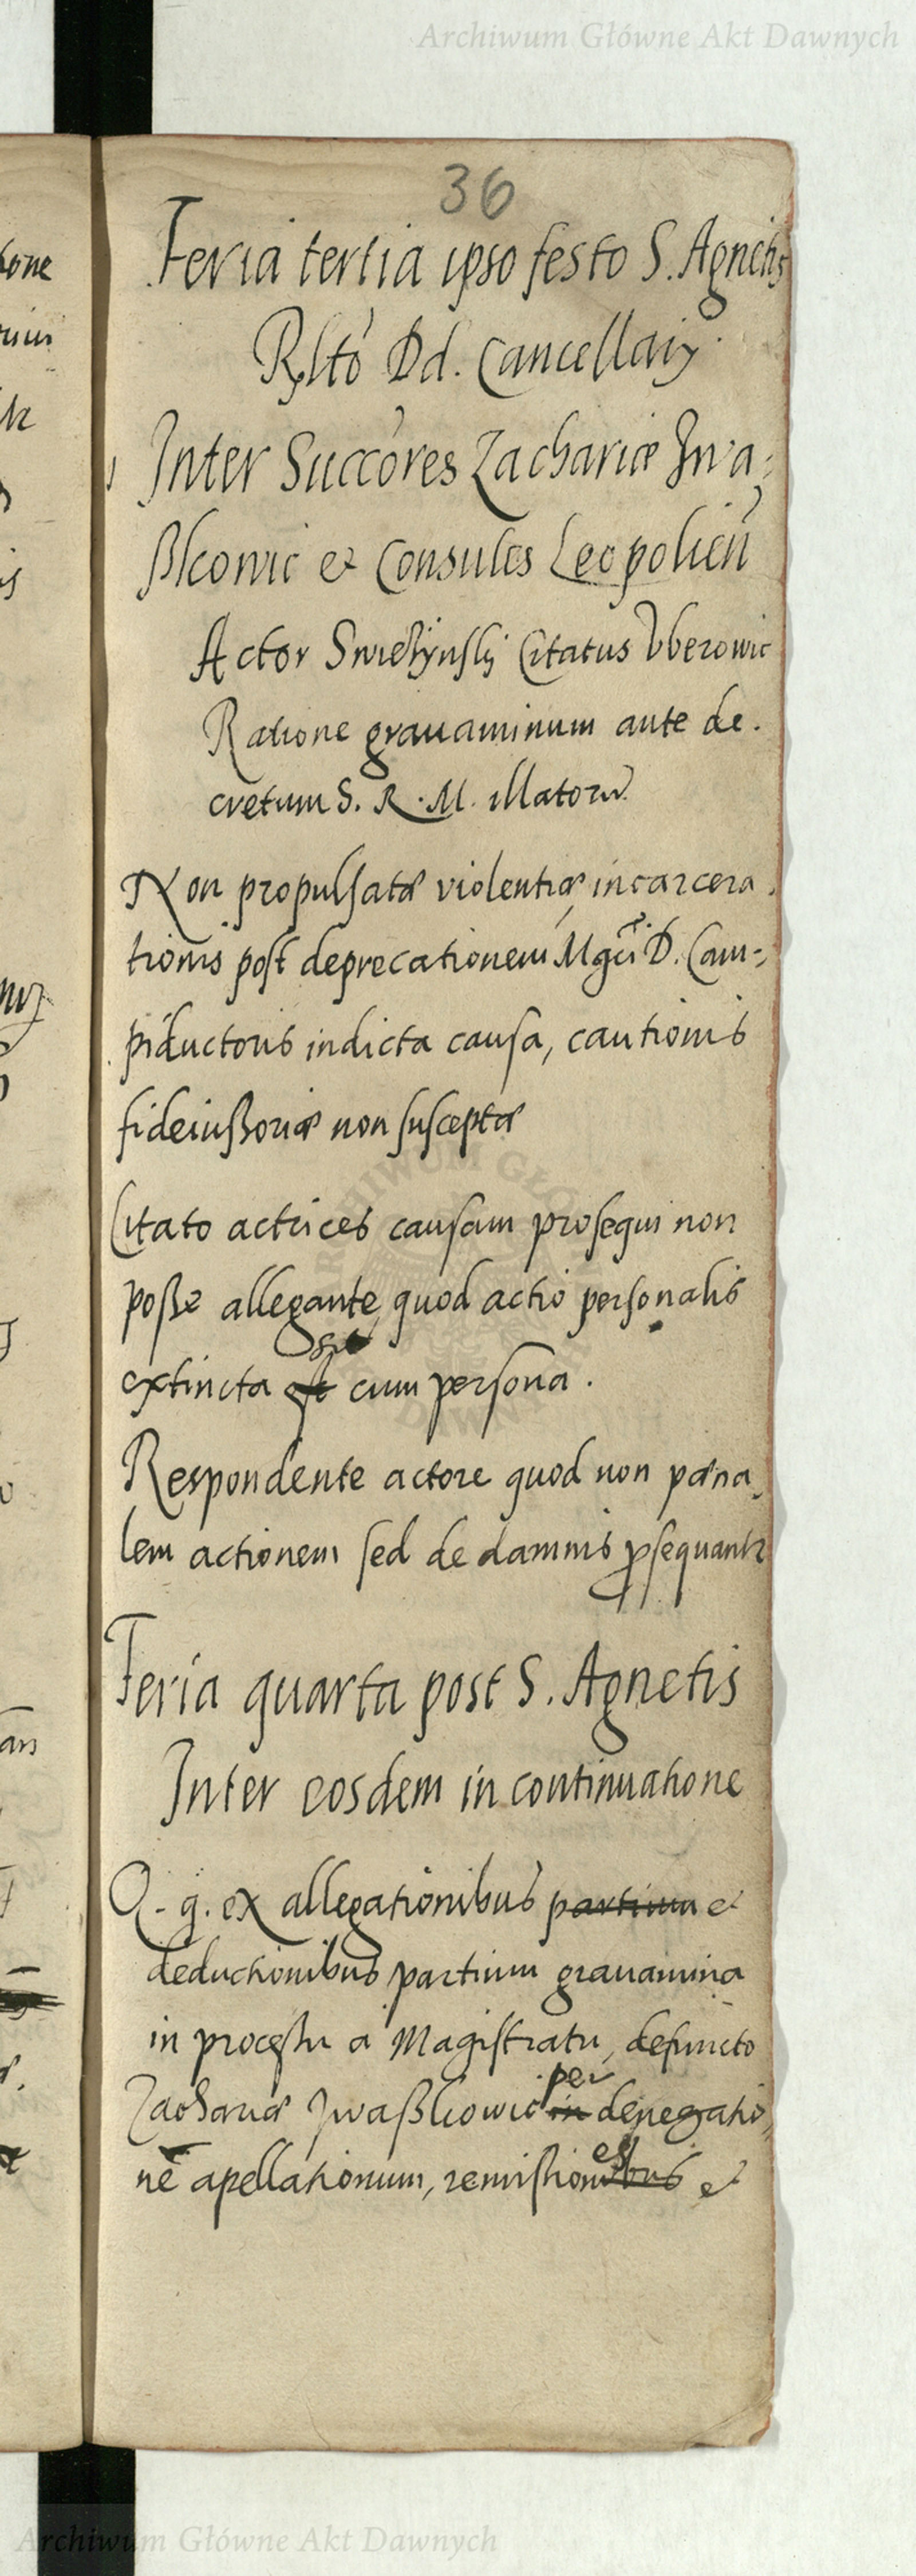 Archiwum Główne Akt Dawnych
36
Feria tertia ipso festo S. Agnetis
Rlto Dd. Cancellarij
Inter Succores Zachariæ Iwa=
ßkowic et Consules Leopolien
Actor Swießynskj Citatus Vberowic
Ratione grauaminum ante de.
cretum S. R. M. illatoru
Non propulsatæ violentiæ incarcera.
tionis post deprecationem Mgci D. Cam=
piductoris indicta causa, cautionis
fideiußoriæ non susceptæ
Citato actrices causam prosequi non
poße allegante, quod actio personalis
sit
extincta est cum persona.
Respondente actore quod non pœna
lem actionem sed de damnis psequantr
Feria quarta post S. Agnetis
Inter eosdem in continuatione
Q. q. ex allegationibus partium et
deductionibus partium grauamina
in proceßu a Magistratu, defuncto
per
Zachariæ Iwaßkowic in denegatio
es
nē apellationum, remißionibus et
Archiwum Główne Akt Dawnych